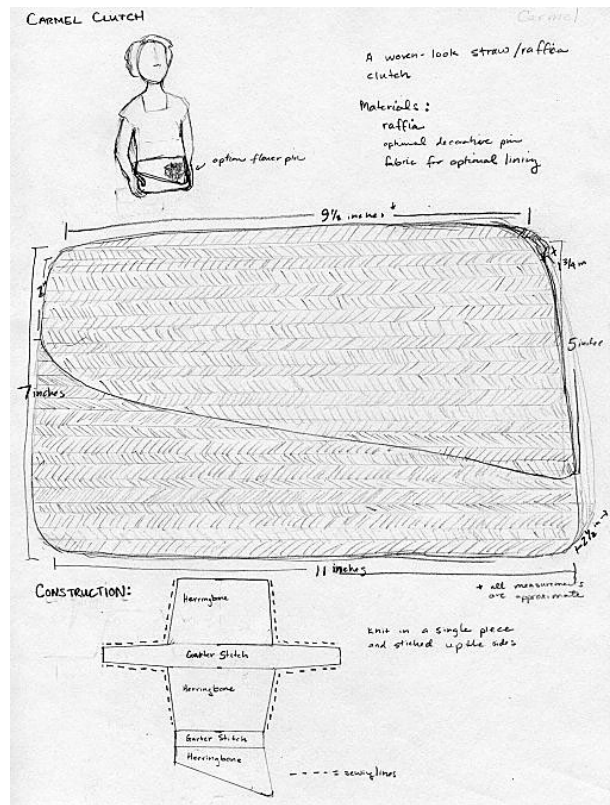 CARMEL CLUTCH
Carmel
A woven-look straw/raffia
clutch
Materials:
raffia
optional decorative pin
fabric for optional lining
flower pin
9½ inches *
¾ in
5 inches
7 inches
2½ in
11 inches
* all measurements
are approximate
CONSTRUCTION:
Herringbone
Garter Stitch
Herringbone
Garter Stitch
Herringbone
knit in a single piece
and stitched up the sides
---- = sewing lines